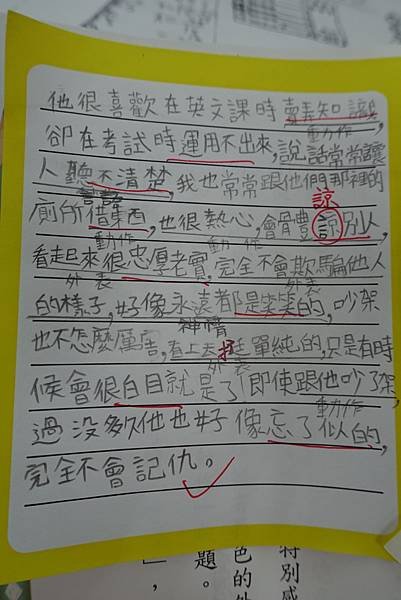 他很喜歡在英文課時賣弄知識,
動作
卻在考試時運用不出來,說話常常讓
人聽不清楚,我也常常跟他們那裡的
言語
諒
廁所借東西,也很熱心,會體諒別人,
動作
動作
看起來很忠厚老實,完全不會欺騙他人
外表
外表
的樣子,好像永遠都是笑笑的,吵架
神情
也不怎麼厲害,看上去挺單純的,只是有時
外表
候會很白目就是了,即使跟他吵架,
動作
過沒多久他也好像忘了似的,
完全不會記仇。
特別感
色的外
題。
」,